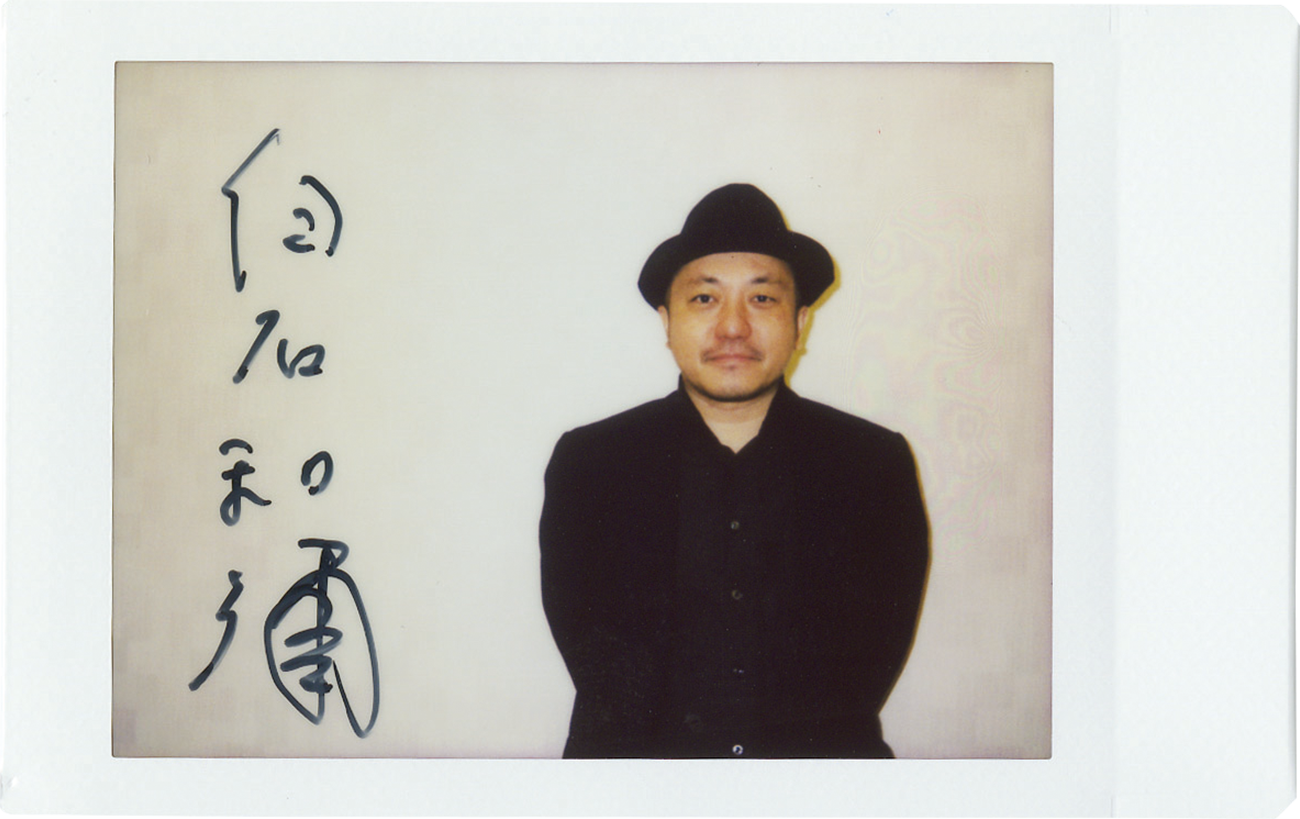 白石和彌